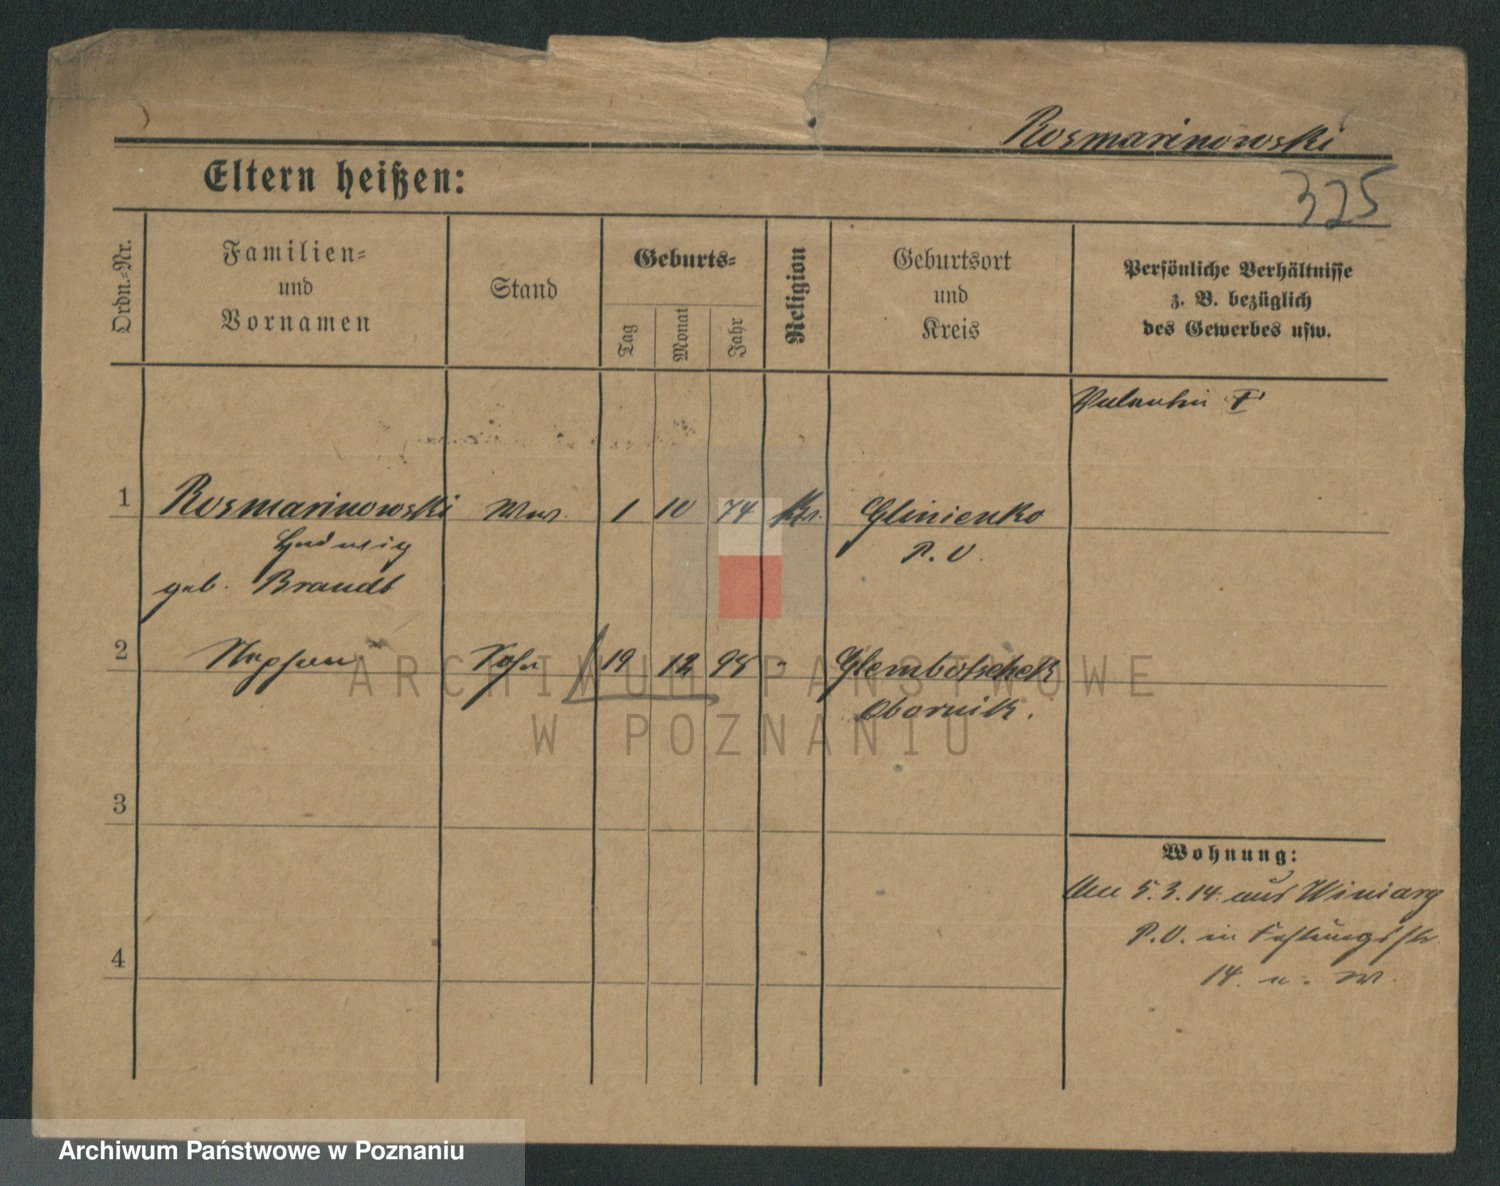 Rosmarinowski
325
Eltern heißen:
Ordn.-Nr.
Familien-
und
Vornamen
Stand
Geburts-
Tag
Monat
Jahr
Religion
Geburtsort
und
Kreis
Persönliche Verhältnisse
z. B. bezüglich
des Gewerbes usw.
Valentin †
1 Rosmarinowski Wwe. 1 10 74 Glinienko
Hedwig P. O.
geb. Brandt
2 Stephan 19 12 98 " Glembotschek
Obornik.
3
4
Wohnung:
Am 5.3.14 aus Winiary
P.O. in Festungsstr.
14.
ARCHIWUM PAŃSTWOWE
W POZNANIU
Archiwum Państwowe w Poznaniu